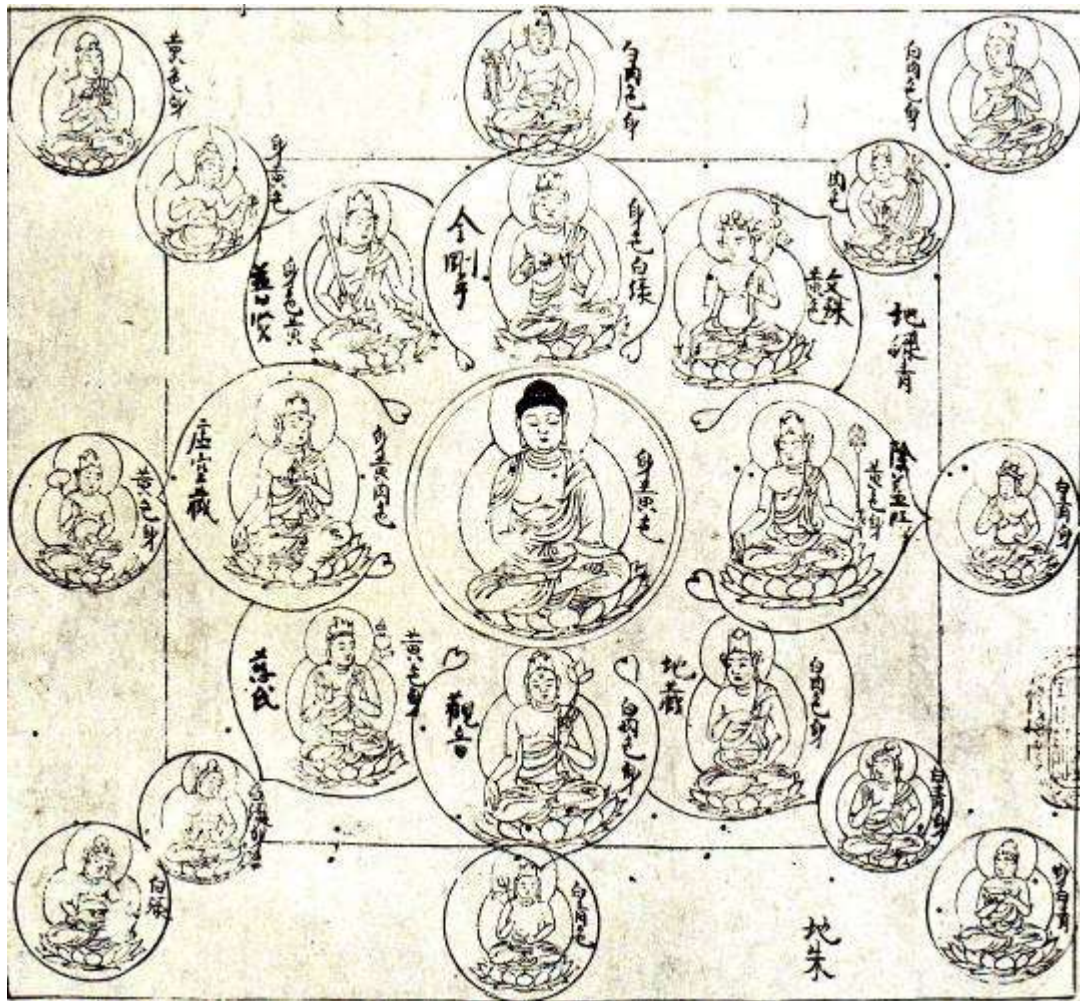 黄色身
白肉色身
白肉色身
身黄色
肉色
普賢
身色黄
金剛手
身色白緑
文殊
黄色
地緑青
虚空蔵
身黄肉色
身黄色
除蓋障
黄色身
黄色身
白青身
慈氏
黄色身
觀音
白肉色身
地蔵
白肉色身
白青身
白緑
白肉色
地朱